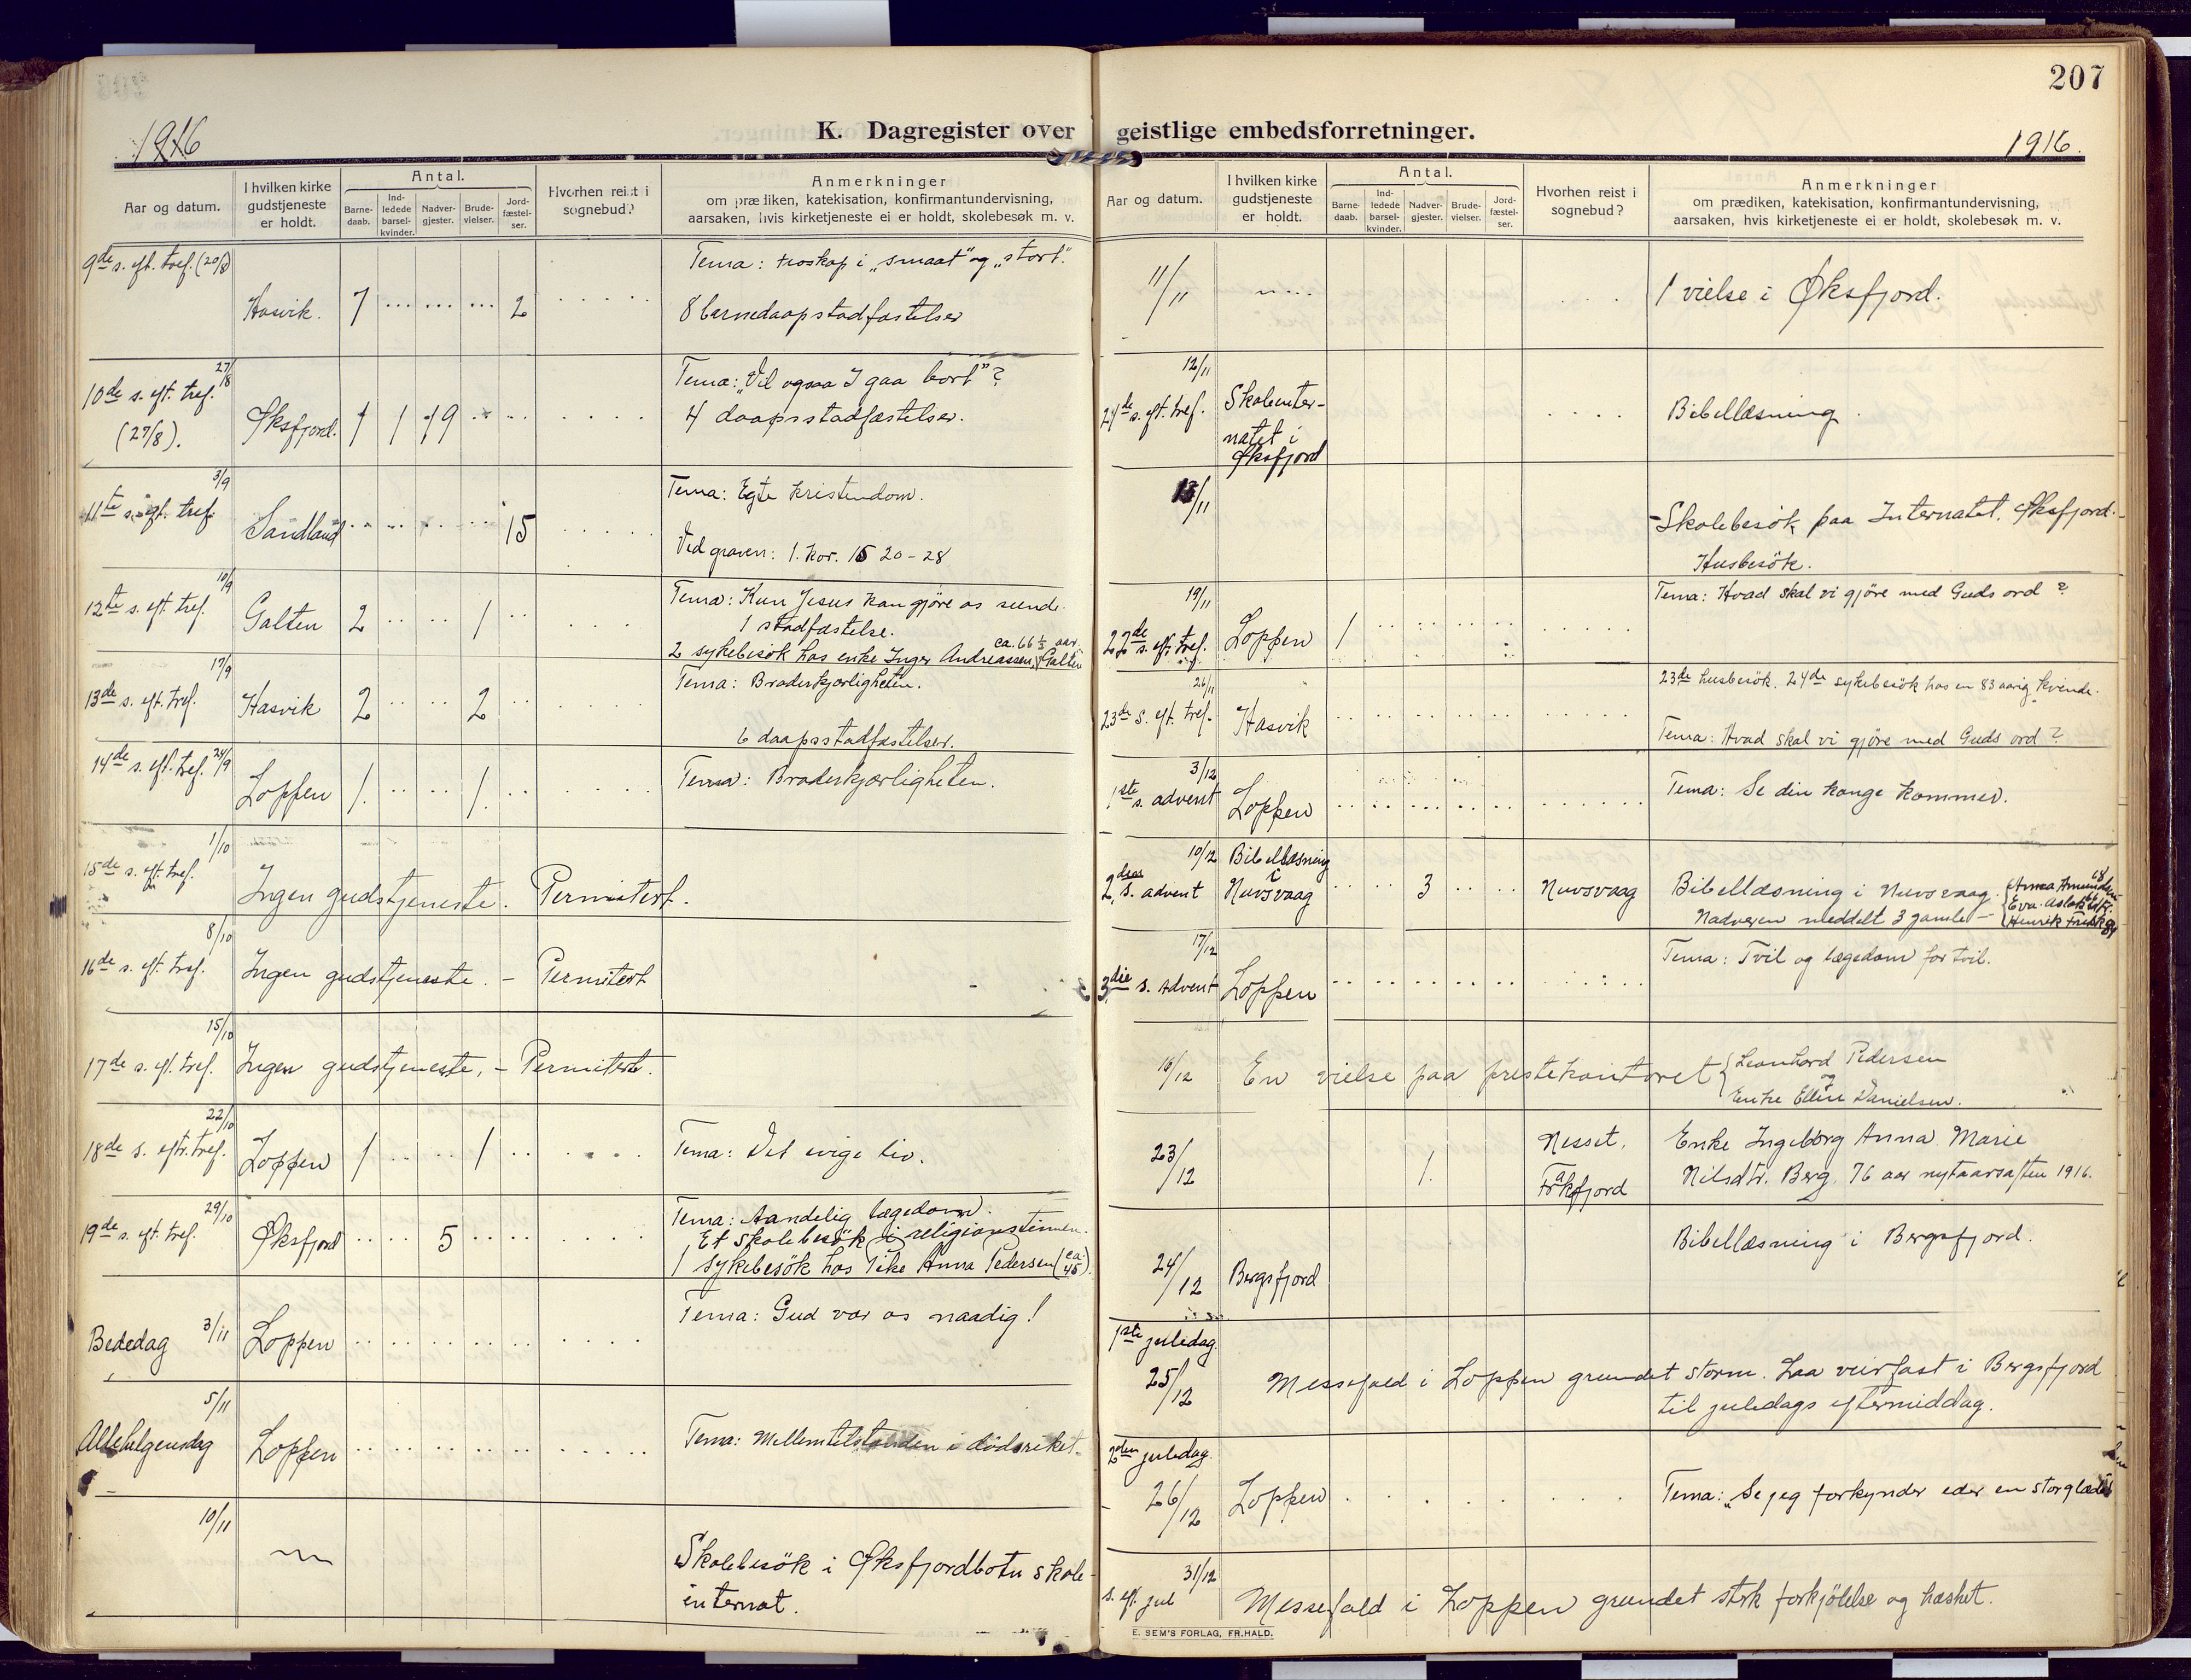 207
K. Dagregister over geistlige embedsforretninger.
1916
1916.
Aar og datum.
I hvilken kirke gudstjeneste er holdt.
Antal.
Barne-daab.
Ind-ledede barsel-kvinder.
Nadver-gjester.
Brude-vielser.
Jord-fæstel-ser.
Hvorhen reist i sognebud?
Anmerkninger
om prædiken, katekisation, konfirmantundervisning,
aarsaken, hvis kirketjeneste ei er holdt, skolebesøk m. v.
9de s. eft. tref. (20/8) Hasvik. 7 2
Tema: troskap i „smaat" og „stort."
8 barnedaapstadfæstelser
10de s. eft. tref. 27/8 (27/8). Øksfjord. 1 1 19
Tema: „Vil ogsaa I gaa bort"?
4 daapsstadfæstelser.
11te s. eft. tref. 3/9 Sandland 15
Tema: Egte kristendom.
Ved graven: 1. Kor. 15 20-28
12te s. eft. tref. 10/9 Galten 2 1
Tema: Kun Jesus kan gjøre os sunde.
1 stadfæstelse.
2 sykebesök hos enke Inger Andreassen, ca. 66 ½ aar. Galten
13de s. eft. tref. 17/9 Hasvik 2 2
Tema: Broderkjærligheten.
6 daapsstadfæstelser.
14de s. eft. tref. 24/9 Loppen 1. 1.
Tema: Broderkjærligheten.
15de s. eft. tref. 1/10 Ingen gudstjeneste. Permitert.
16de s. eft. tref. 8/10 Ingen gudstjeneste. - Permitert
17de s. eft. tref. 15/10 Ingen gudstjeneste, - Permitert.
18de s. eftr. tref. 22/10 Loppen 1 1
Tema: Det evige liv.
19de s. eft. tref. 29/10 Øksfjord 5
Tema: Aandelig lægedom.
Et skolebesök i religionstimen.
1 sykebesök hos Pike Anna Pedersen (ca. 45).
Bededag 3/11 Loppen
Tema: Gud vær os naadig!
5/11 Allehelgensdag Loppen
Tema: Mellemtilstanden i dödsriket.
10/11
Skolebesök i Øksfjordbotn skole-
internat.
Aar og datum.
I hvilken kirke gudstjeneste er holdt.
Antal.
Barne-daab.
Ind-ledede barsel-kvinder.
Nadver-gjester.
Brude-vielser.
Jord-fæstel-ser.
Hvorhen reist i sognebud?
Anmerkninger
om prædiken, katekisation, konfirmantundervisning,
aarsaken, hvis kirketjeneste ei er holdt, skolebesøk m. v.
11/11 1 vielse i Øksfjord.
12/11 21de s. eft. tref. Skoleinter-
natet i
Øksfjord
Bibellæsning.
13/11 Skolebesök paa Internatet, Øksfjord.
Husbesök.
19/11 22de s. eft. tref. Loppen 1
Tema: Hvad skal vi gjöre med Guds ord?
26/11 23de s. eft. tref. Hasvik
23de husbesök. 24de sykebesök hos en 83 aarig kvinde.
Tema: Hvad skal vi gjöre med Guds ord?
3/12 1ste s. advent Loppen
Tema: Se din konge kommer.
10/12 2den s. advent Bibellæsning
i
Nuvsvaag 3 Nuvsvaag
Bibellæsning i Nuvsvaag.
Nadveren meddelt 3 gamle -
17/12 3die s. Advent Loppen
Tema: Tvil og lægedom for tvil.
16/12 En vielse paa prestekontoret { Leonhard Pedersen
og
Enke Elline Danielsen.
23/12 1. Nesset,
Frakfjord
Enke Ingeborg Anna Marie
Nilsdtr. Berg, 76 aar nytaarsaften 1916.
24/12 Bergsfjord
Bibellæsning i Bergsfjord.
1ste juledag
25/12 Messefald i Loppen grundet storm. Laa veirfast i Bergsfjord
til juledags eftermiddag.
2den juledag
26/12 Loppen
Tema: „Se jeg forkynder eder en stor glæde
31/12
s. eft. jul Messefald i Loppen grundet sterk forkjölelse og hæshet.
E. SEM'S FORLAG, FR.HALD.